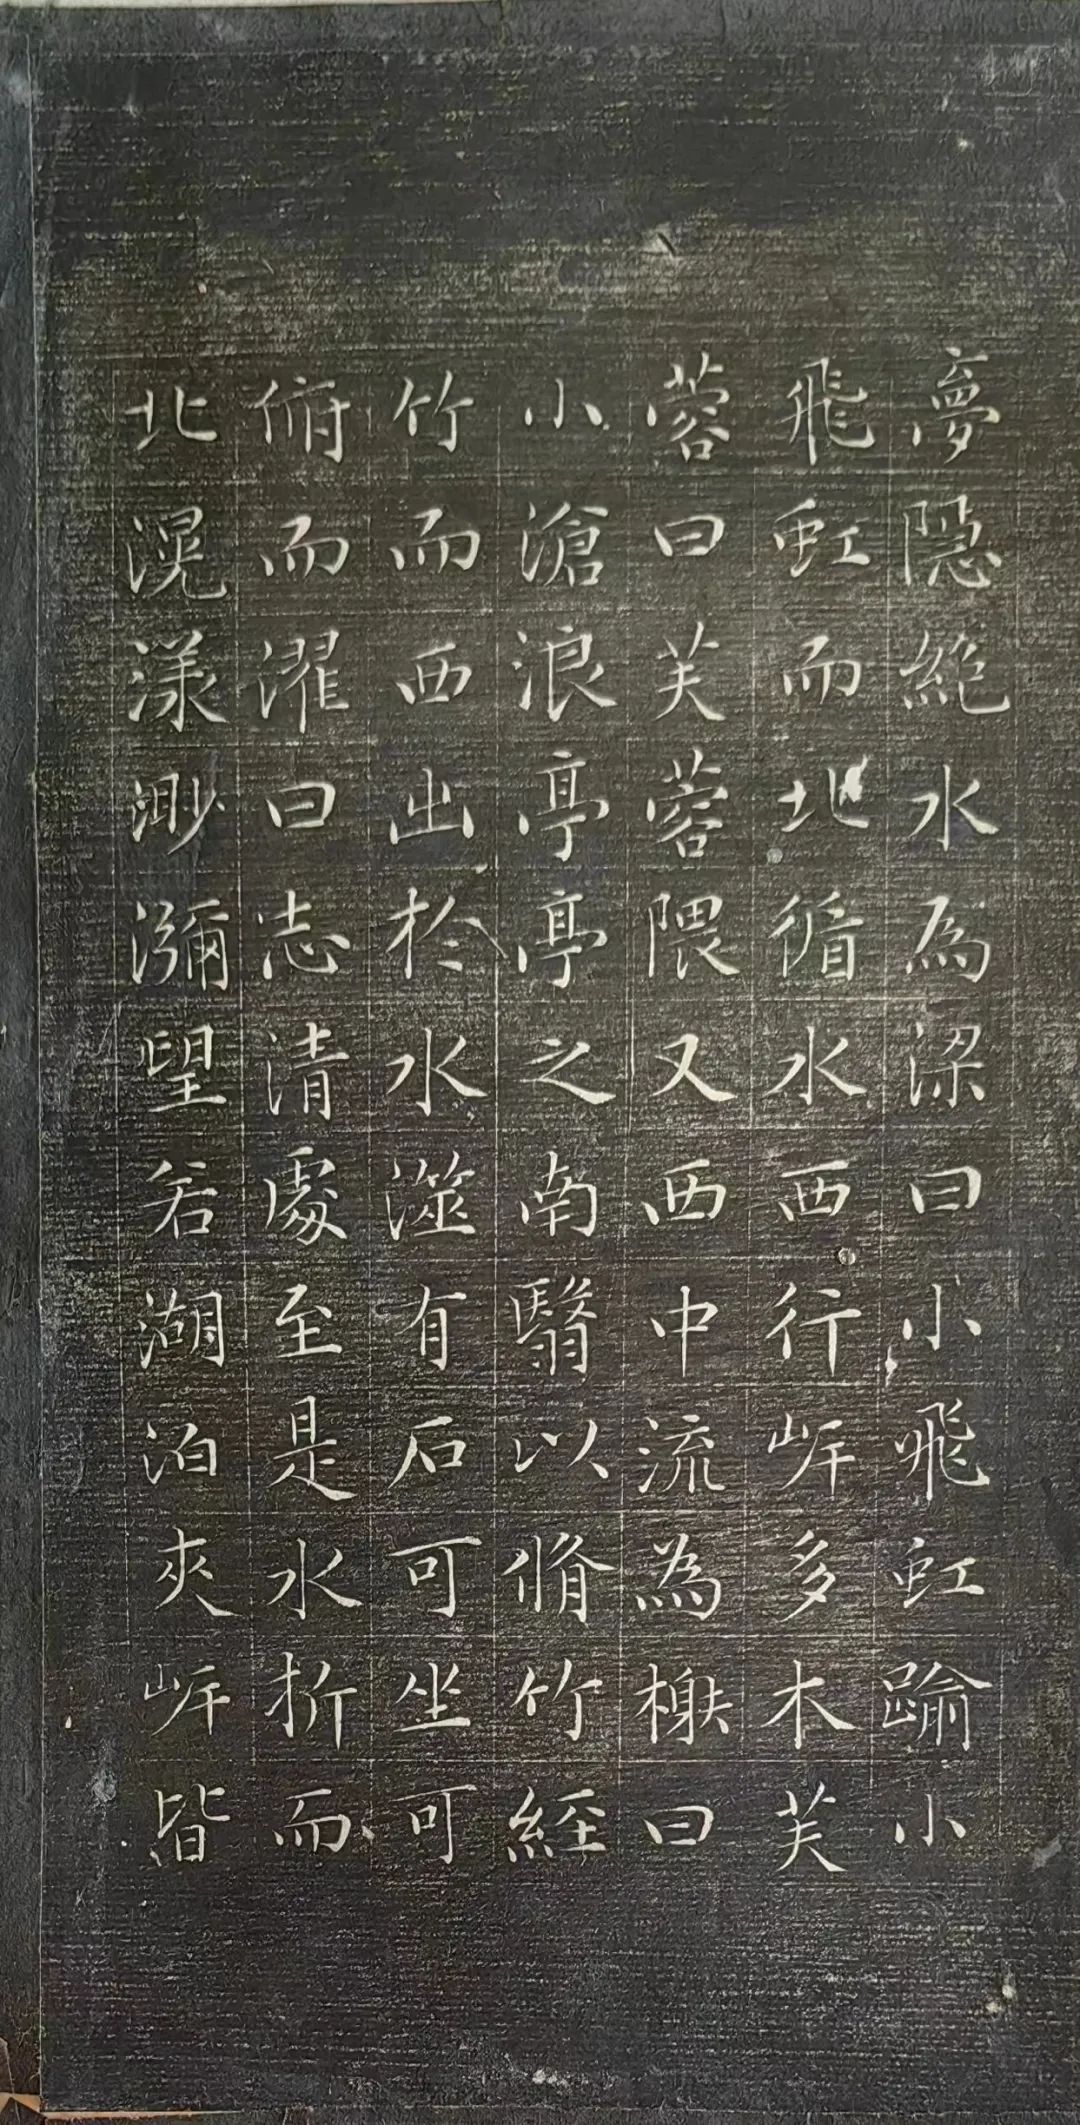 夢隱絶水為梁曰小飛虹踰小
飛虹而北循水西行岸多木芙
蓉曰芙蓉隈又西中流為榭曰
小滄浪亭亭之南翳以脩竹經
竹而西出於水澨有石可坐可
俯而濯曰志清處至是水折而
北滉漾渺瀰望若湖泊夾岸皆